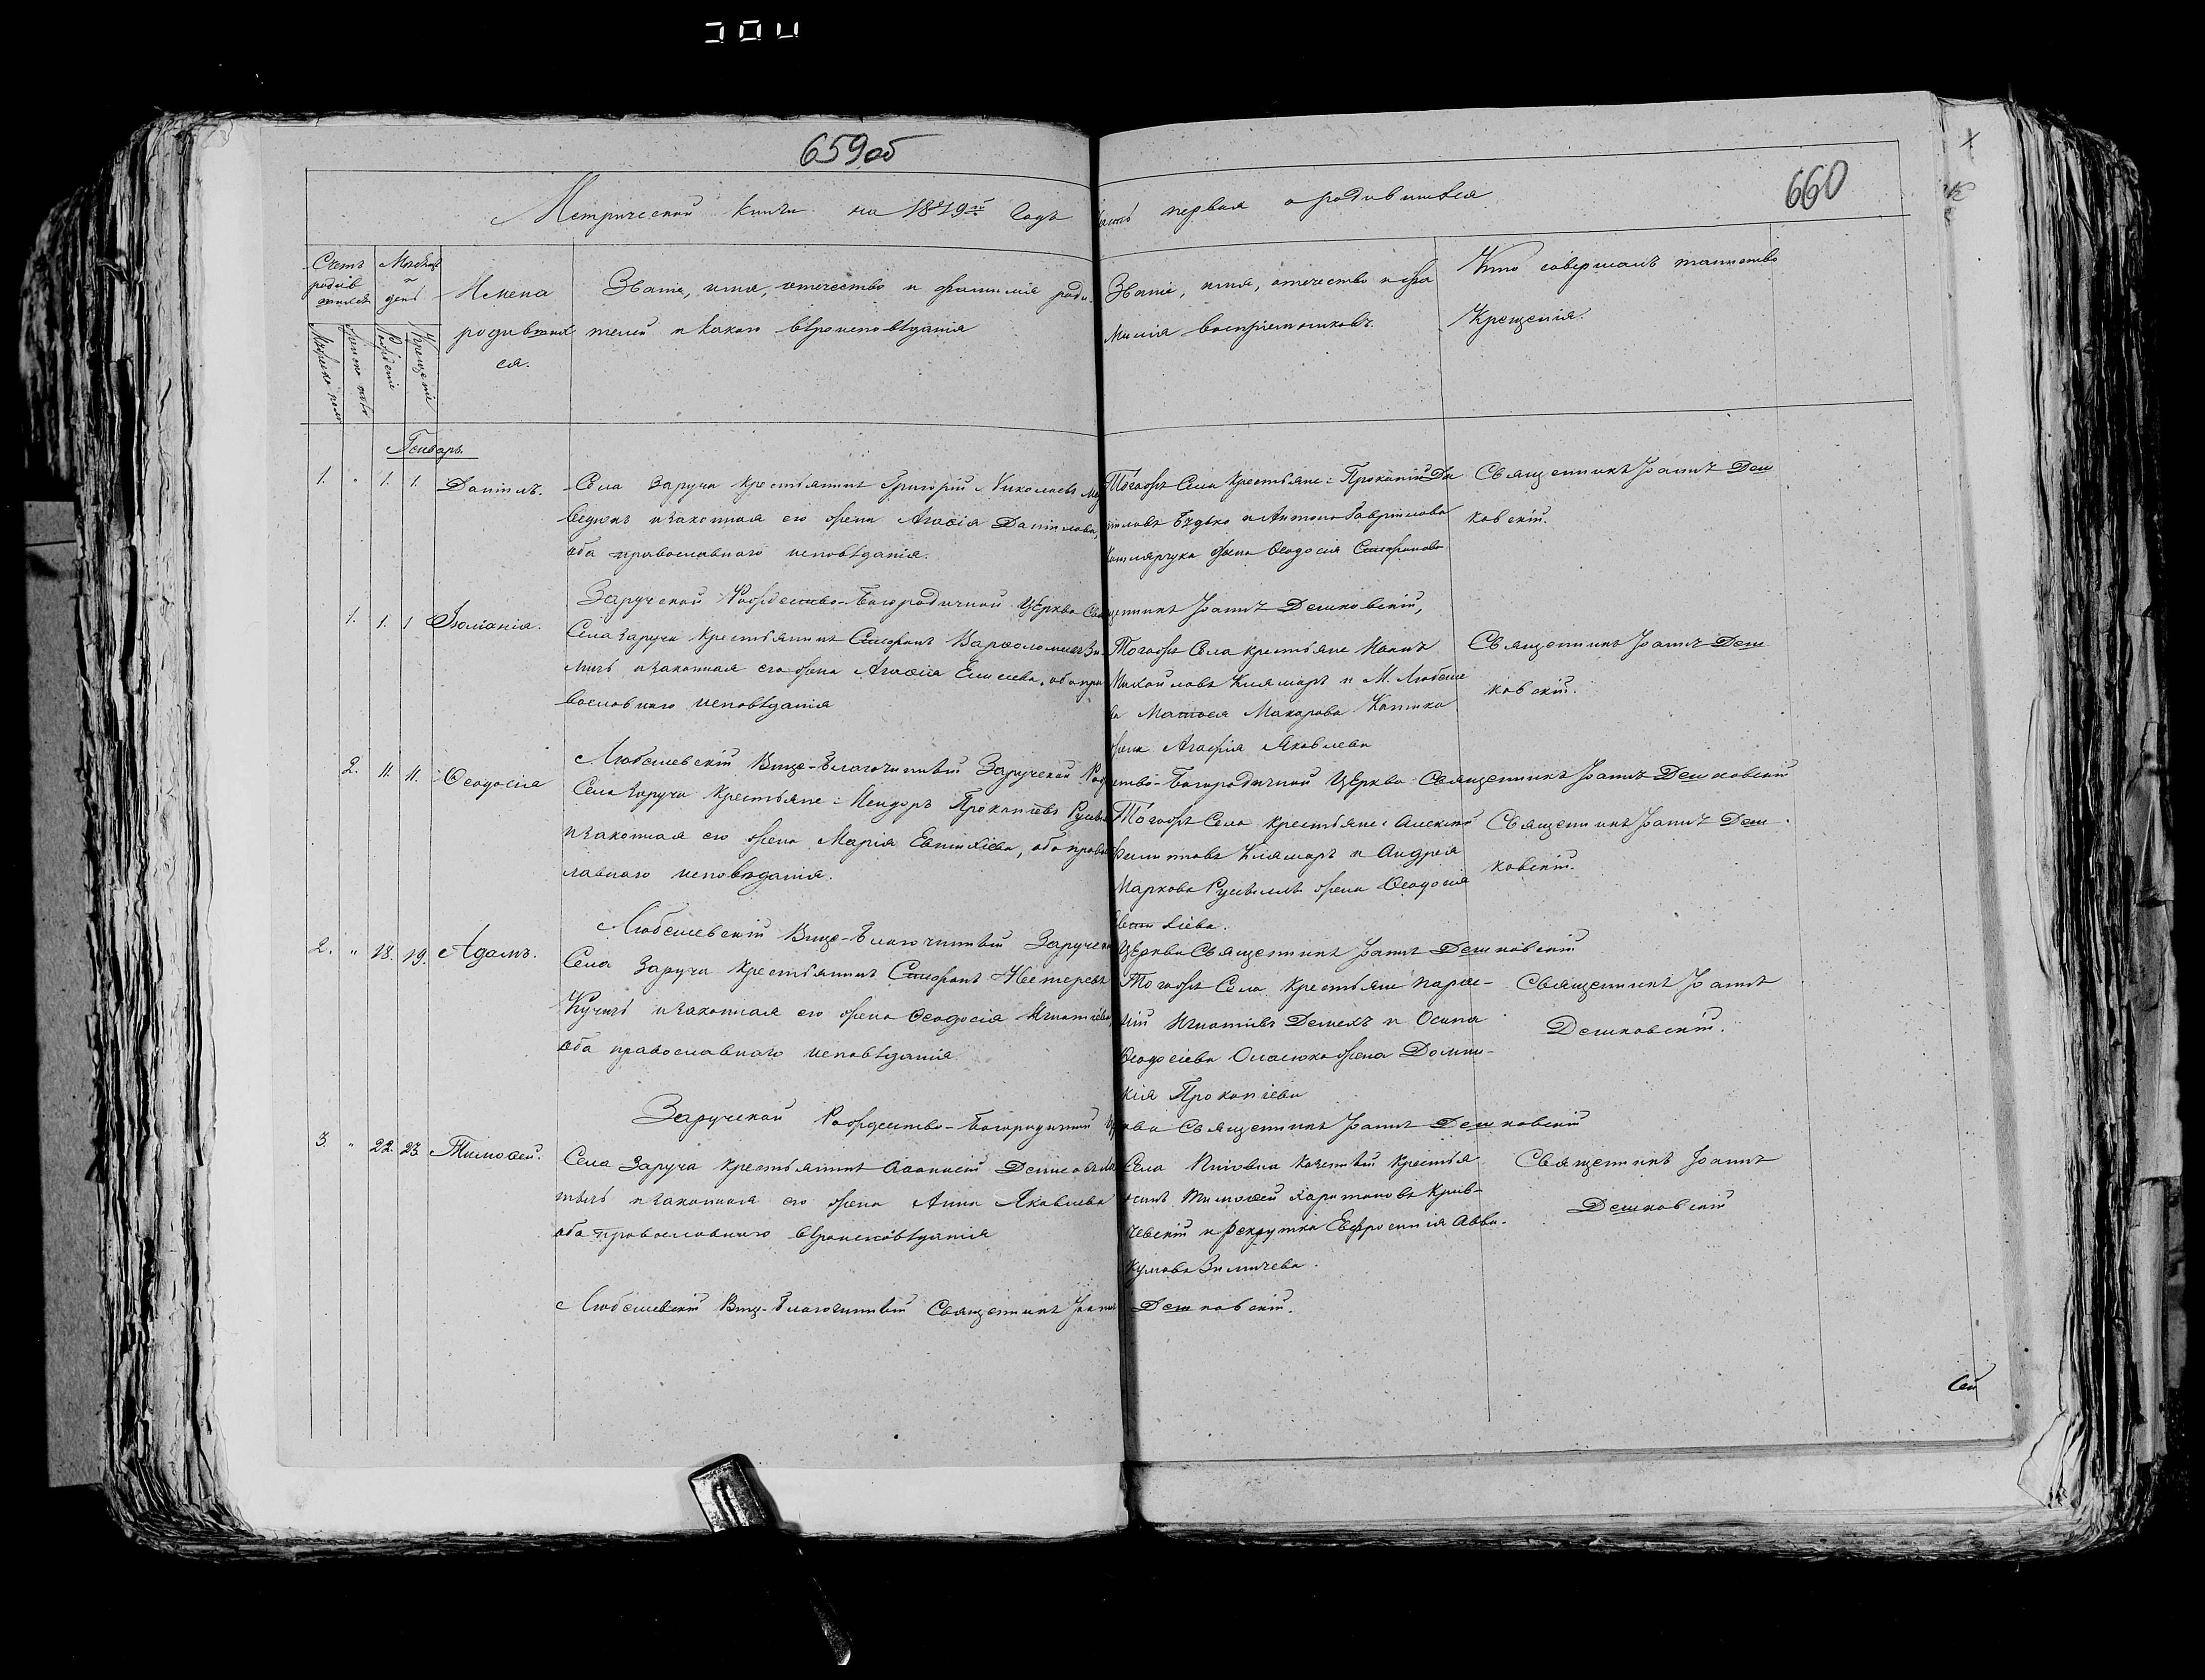 659об
660
Метрической книги на 1849й Годъ часть первая о родившихся
Счетъ родив шихся
Мѣсяцъ и день
Имена родившихся.
Званіе, имя, отечество и фамилія родителей и какого вѣроисповѣданія
Званіе, имя, отечество и фамилія воспріемниковъ.
Кто совершалъ таинство Крещенія.
Мужеска пола
Женска пола
Рожденіе
Крещеніе
Генварь
1. " 1. 1. Даніилъ.
Села Заруча Крестьянинъ Григорій Николаевъ
и законная его жена Агафія Даніилова,
оба православнаго исповѣданія.
Тогожъ Села Крестьяне: Прокопій Да
ніиловъ Будько и Антона Гавріилова
жена Ѳеодосія Стефанова
Священникъ Іоаннъ Деш
ковскій.
Заруческой Рождество-Богородичной Церкви Священникъ Іоаннъ Дешковскій,
1. 1. 1 Іюліанія.
Села Заруча Крестьянинъ Стефанъ Варѳоломѣевъ Зи
мичъ и законная его жена Агафія Елисеева, оба пра
вославнаго исповѣданія
Тогожъ Села крестьяне Иванъ
Михайловъ Климаръ и М. Любеше
ва Матѳея Макарова
жена Агафія Яковлева
Священникъ Іоаннъ Деш
ковскій.
Любешевскій Вице-Благочинный Заруческой Рождество-Богородичной Церкви Священникъ Іоаннъ Дешковскій
2. 11. 11. Ѳеодосія
Села Заруча Крестьяне: Исидоръ Прокопіевъ
и законная его жена Марія Евтихіева, оба правос
лавнаго исповѣданія.
Тогожъ Села крестьяне: Алексѣй
Филиповъ Климаръ и Андрея
Маркова жена Ѳеодосія
Евтихіева.
Священникъ Іоаннъ Деш
ковскій.
Любешевскій Вице-Благочинный Заруческой Церкви Священникъ Іоаннъ Дешковскій
2. " 18. 19. Адамъ.
Села Заруча Крестьянинъ Стефанъ Нестеровъ
Кучичъ и законная его жена Ѳеодосія Игнатіева
оба православнаго исповѣданія.
Тогожъ Села Крестьяне
Игнатіевъ и Осипа
Ѳеодосіева жена Домни-
кія Прокопіева
Священникъ Іоаннъ
Дешковскій.
Заруческой Рождество-Богородичной Церкви Священникъ Іоаннъ Дешковскій
3. " 22. 23. Тимоѳей.
Села Заруча Крестьянинъ Аѳанасій Денисовъ
и законная его жена Анна Яковлева
оба православнаго вѣроисповѣданія
Села Крестья
нинъ Тимоѳей Харитоновъ Крив-
чевскій и рекрутка Евфросинія Авва-
кумова Зимичева.
Священникъ Іоаннъ
Дешковскій
Любешевскій Вице-Благочинный Священникъ Іоаннъ Дешковскій.